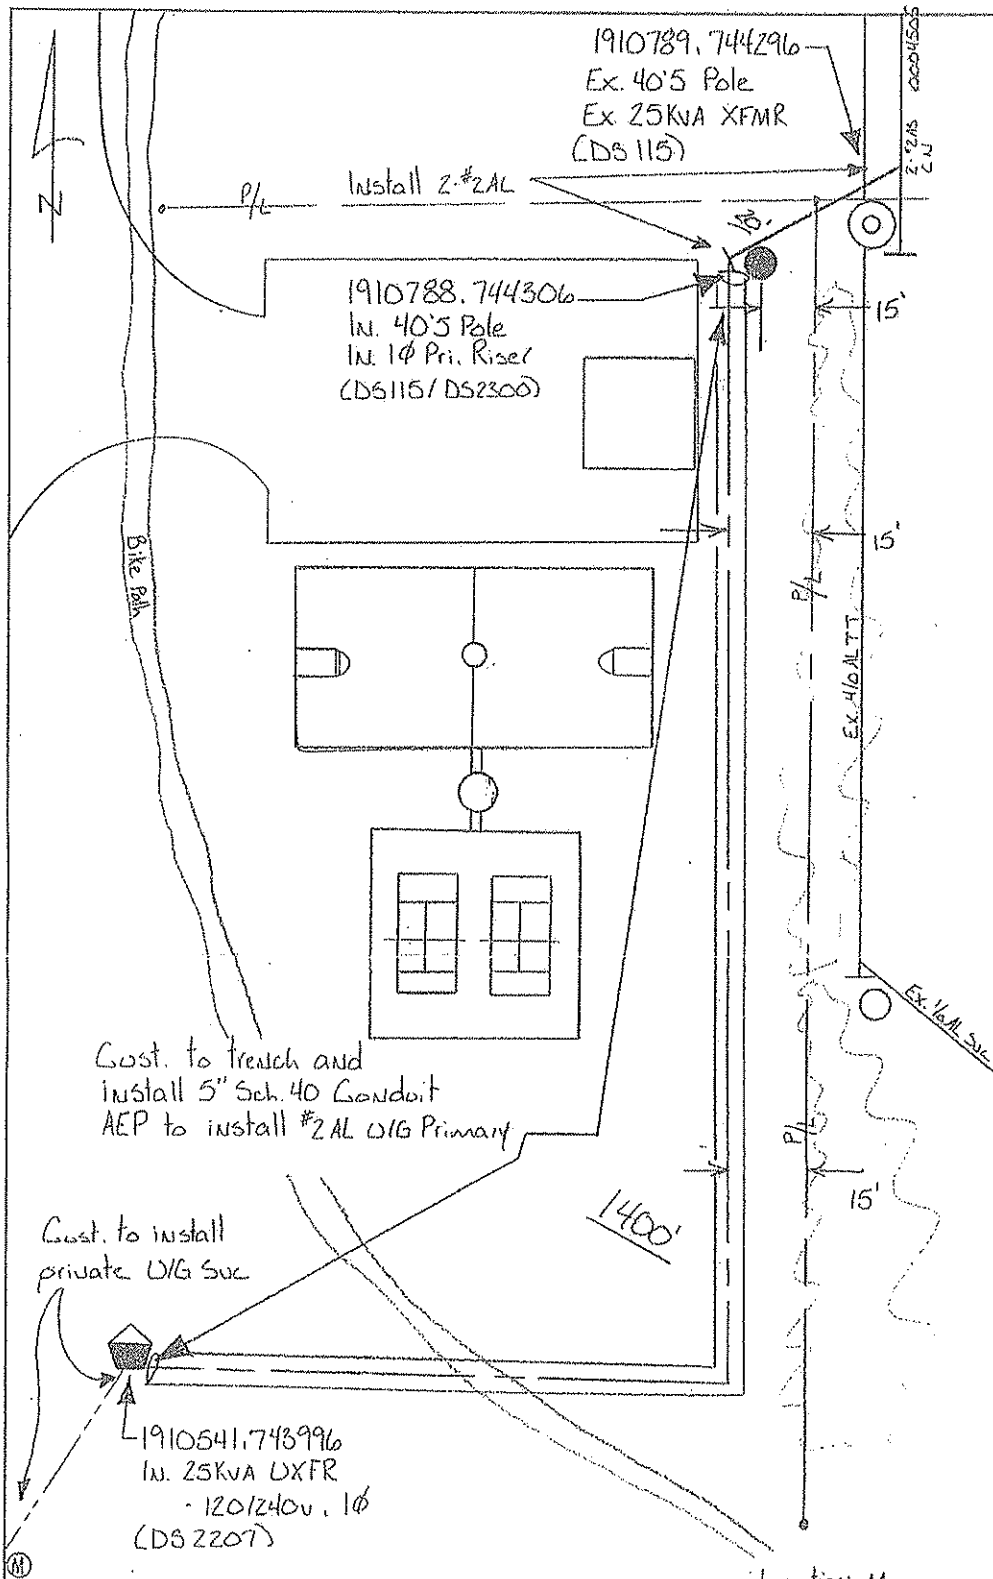 1910789.744296
Ex. 40'5 Pole
Ex. 25KVA XFMR
(DS 115)
2-#2AS
2N
Install 2-#2AL
P/L
N
1910788.744306
IN. 40'5 Pole
IN. 1Ø Pri. Riser
(DS115/DS2300)
15'
15'
Bike Path
P/L
Ex. 4/0ALTT
Ex. 1/0AL Svc
Cust. to trench and
install 5" Sch. 40 Conduit
AEP to install #2AL U/G Primary
P/L
15'
1400'
Cust. to install
private U/G Svc
1910541,743996
IN. 25KVA UXFR
- 120/240v, 1Ø
(DS 2207)
M